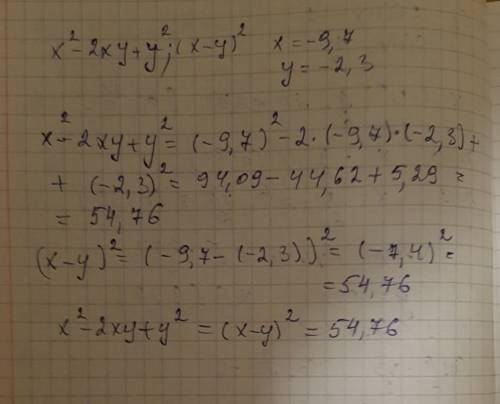 x² - 2xy + y²; (x-y)² x = -9,7
y = -2,3
x² - 2xy + y² = (-9,7)² - 2·(-9,7)·(-2,3) +
+ (-2,3)² = 94,09 - 44,62 + 5,29 =
= 54,76
(x-y)² = (-9,7 - (-2,3))² = (-7,4)² =
= 54,76
x² - 2xy + y² = (x-y)² = 54,76